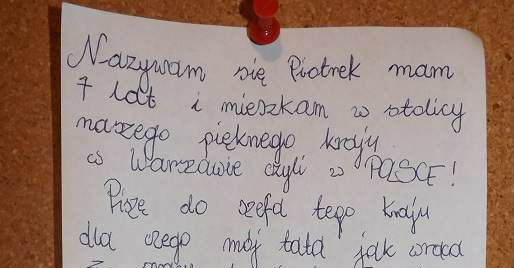 Nazywam się Piotrek mam
7 lat i mieszkam w stolicy
naszego pięknego kraju.
w Warszawie czyli w POLSCE!
Piszę do szefa tego kraju
dla czego mój tata jak wraca
z pracy